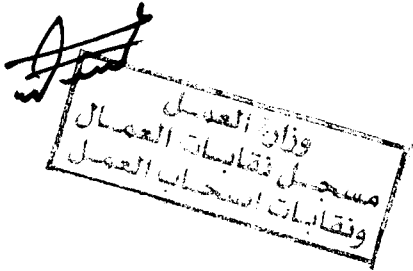 وزارة العمل
مسجل نقابات العمال
ونقابات اصحاب العمل